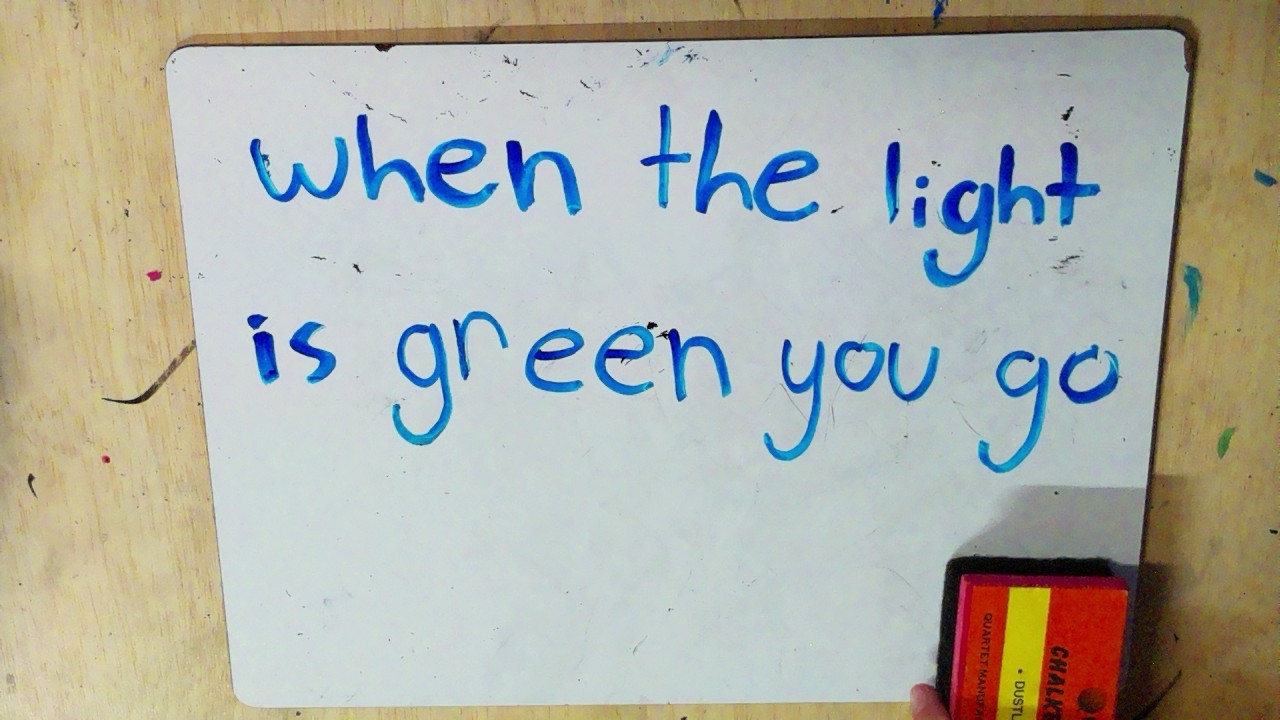 when the light
is green you go
QUARTET MANUFA
DUSTL
CHALK